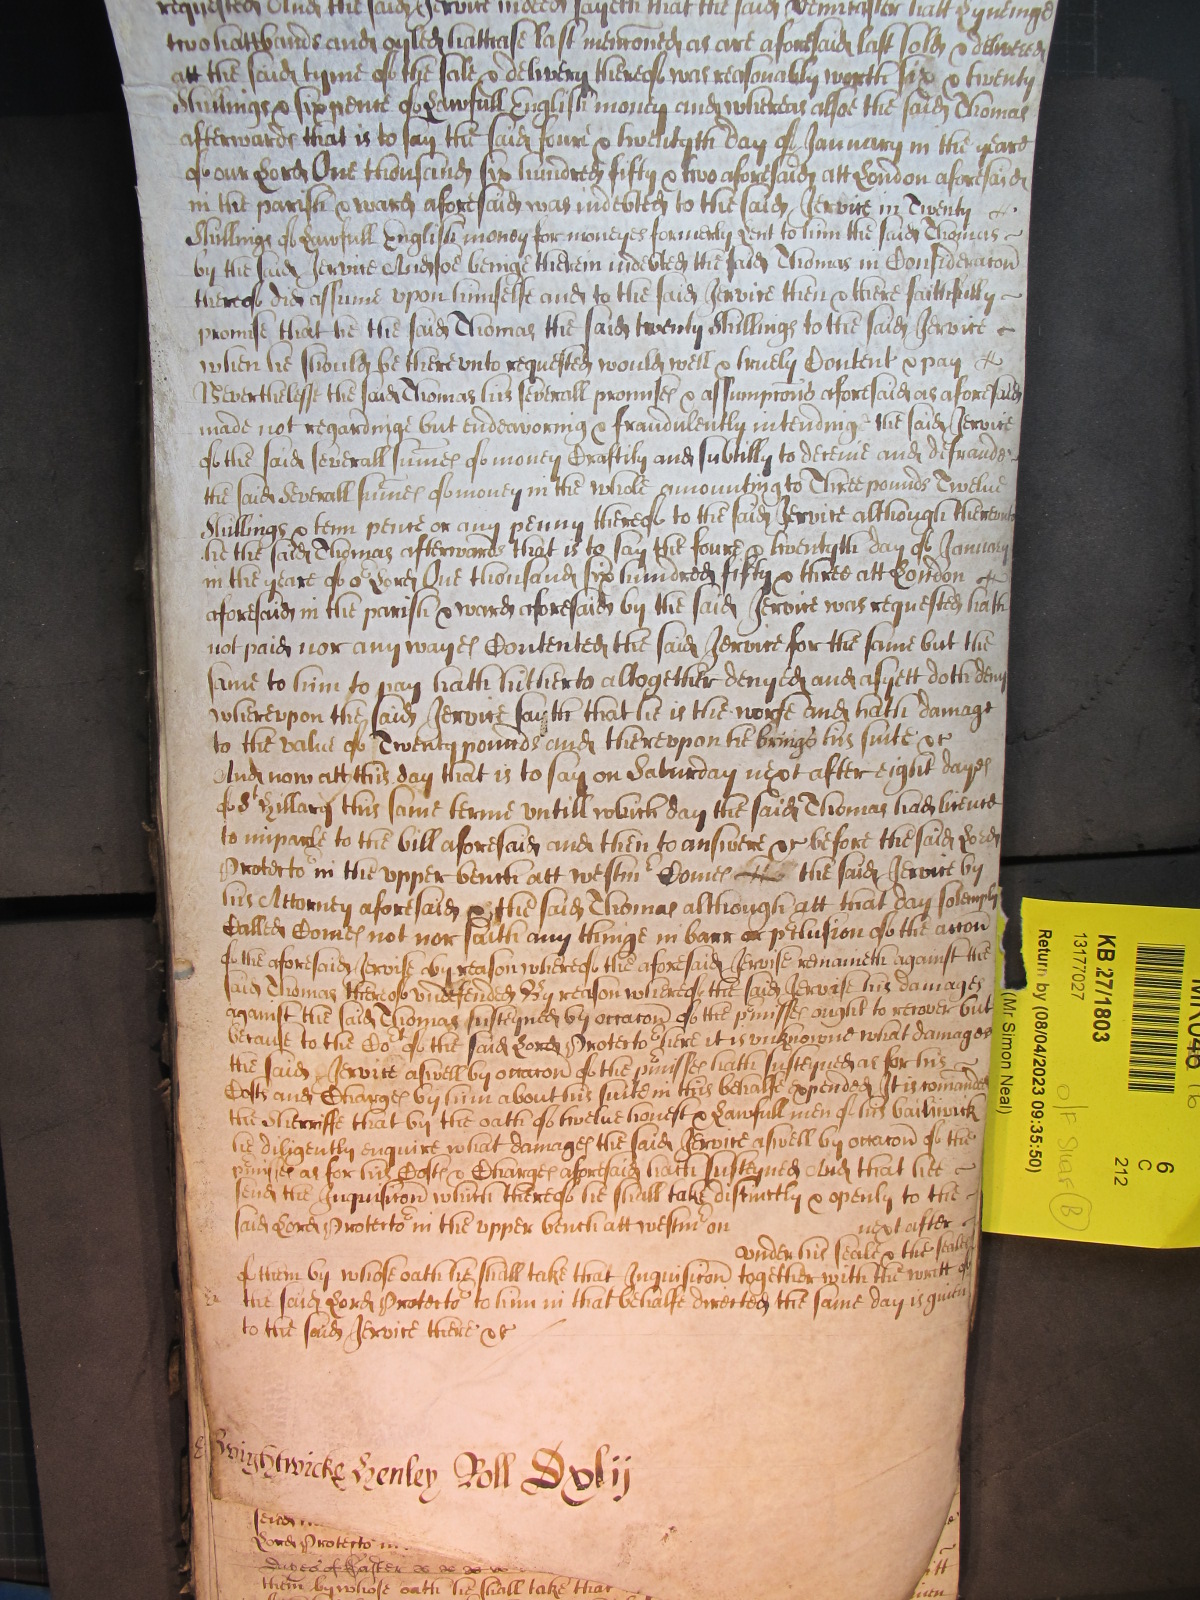 requested And the said Jervice indeed sayeth that the said Demicaster hatt Lyneinge
two hattbands and oyled hattcase last menconed as are aforesaid last sold & delivered
att the said tyme of the sale & delivery thereof was reasonably worth six & twenty
Shillings & six pence of Lawfull English money and whereas alsoe the said Thomas
afterwards that is to say the said foure & twentyth day of January in the yeare
of our Lord One thousand six hundred fifty & two aforesaid att London aforesaid
in the parish & ward aforesaid was indebted to the said Jervice in Twenty
Shillings of Lawfull English money for moneyes formerly lent to him the said Thomas
by the said Jervice And soe beinge therein indebted the said Thomas in Consideracon
thereof did assume upon himselfe and to the said Jervice then & there faithfully
promise that he the said Thomas the said twenty Shillings to the said Jervice
when he should be therevnto requested would well & truely Content & pay
Neverthelesse the said Thomas his severall promises & assumpcons aforesaid as aforesaid
made not regardinge but endeavoring & fraudulently intendinge the said Jervice
of the said severall sumes of money Craftily and subtilly to deceive and defraude
the said Severall sumes of money in the whole amounting to Three pounds Twelve
Shillings & tenn pence or any penny thereof to the said Jervice although therevnto
he the said Thomas afterwards that is to say the foure & twentyth day of January
in the yeare of or Lord One thousand six hundred fifty & three att London
aforesaid in the parish & ward aforesaid by the said Jervice was requested hath
not paid nor any wayes Contented the said Jervice for the same but the
same to him to pay hath hitherto altogether denyed and as yett doth deny
wherevpon the said Jervice saith that he is the worse and hath damage
to the value of Twenty pounds and therevpon he brings his suite &c
And now att this day that is to say on Saturday next after eight dayes
of St Hillary this same terme vntill which day the said Thomas had licence
to imparle to the bill aforesaid and then to answere &c before the said Lord
Protector in the vpper bench att westmr Comes the said Jervice by
his Attorney aforesaid & the said Thomas although att that day solemply
Called Comes not nor saith any thinge in barr or pclusion of the accon
of the aforesaid Jervise by reason whereof the aforesaid Jervise remaineth against the
said Thomas thereof vndefended By reason whereof the said Jervise his damages
against the said Thomas susteyned by occacon of the pmisses ought to recover but
because to the Cort of the said Lord Protector here it is vnknowne what damages
the said Jervice aswell by occacon of the pmisses hath susteyned as for his
Costs and Charges by him about his suite in this behalfe expended It is comanded
the Sherriffe that by the oath of twelve honest & Lawfull men of his bailywick
he diligently enquire what damages the said Jervice aswell by occacon of the
pmisses as for his Costs & Charges aforesaid hath susteyned And that hee
send the Inquisicon which thereof he shall take distinctly & openly to the
said Lord Protector in the vpper bench att westmr on next after
vnder his seale & the seales
of them by whose oath he shall take that Inquisicon together with the writt of
the said Lord Protector to him in that behalfe directed the same day is given
to the said Jervice there &c
Wrightwicke Henley Roll Dxlij
Lord Protector in
Dayes of Easter
them by whose oath he shall take that
KB 27/1803
13177027
Return by (08/04/2023 09:35:50)
(Mr Simon Neal)
6
C
212
O/F Shelf B